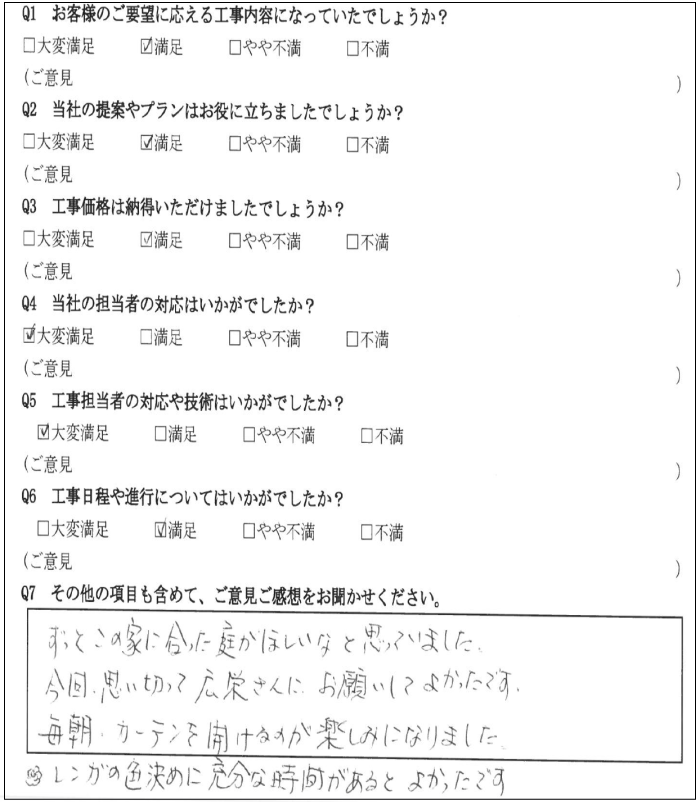 Q1 お客様のご要望に応える工事内容になっていたでしょうか？
□大変満足 ☑満足 □やや不満 □不満
(ご意見 )
Q2 当社の提案やプランはお役に立ちましたでしょうか？
□大変満足 ☑満足 □やや不満 □不満
(ご意見 )
Q3 工事価格は納得いただけましたでしょうか？
□大変満足 ☑満足 □やや不満 □不満
(ご意見 )
Q4 当社の担当者の対応はいかがでしたか？
☑大変満足 □満足 □やや不満 □不満
(ご意見 )
Q5 工事担当者の対応や技術はいかがでしたか？
☑大変満足 □満足 □やや不満 □不満
(ご意見 )
Q6 工事日程や進行についてはいかがでしたか？
□大変満足 ☑満足 □やや不満 □不満
(ご意見 )
Q7 その他の項目も含めて、ご意見ご感想をお聞かせください。
ずっとこの家に合った庭がほしいなと思っていました。
今回、思い切って広栄さんに、お願いしてよかったです。
毎朝、カーテンを開けるのが楽しみになりました。
レンガの色決めに充分な時間があるとよかったです